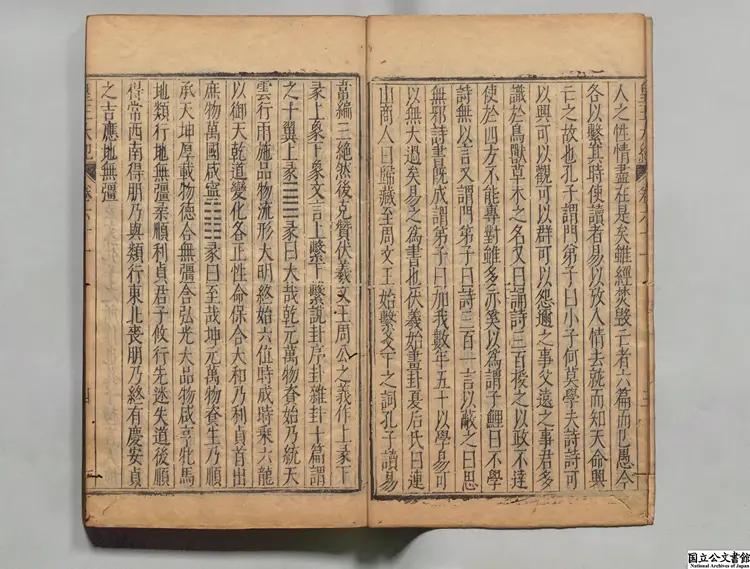 人之性情盡在是矣雖經焚毀亡者六篇而已愚今
各以繫其時使讀者易以放人情去就而知天命興
亡之故也孔子謂門弟子曰小子何莫學夫詩詩可
以興可以觀可以群可以怨邇之事父遠之事君多
識於鳥獸草木之名又曰誦詩三百授之以政不達
使於四方不能專對雖多亦奚以為謂子鯉曰不學
詩無以言又謂門弟子曰詩三百一言以蔽之曰思
無邪詩書既成謂弟子曰加我數年五十以學易可
以無大過矣易之為書也伏羲始畫卦夏后氏曰連
山商人曰歸藏至周文王始繫爻下之詞孔子讀易
韋編三絕然後克贊伏羲文王周公之義作上彖下
彖上象下象文言上繫下繫說卦序卦雜卦十篇謂
之十翼上彖䷀彖曰大哉乾元萬物資始乃統天
雲行雨施品物流形大明終始六位時成時乘六龍
以御天乾道變化各正性命保合大和乃利貞首出
庶物萬國咸寧䷁彖曰至哉坤元萬物資生乃順
承天坤厚載物德合無疆含弘光大品物咸亨牝馬
地類行地無疆柔順利貞君子攸行先迷失道後順
得常西南得朋乃與類行東北喪朋乃終有慶安貞
之吉應地無疆
国立公文書館
National Archives of Japan